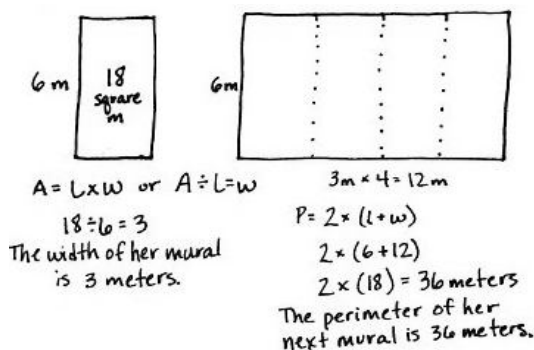 6 m
18
square
m
A = L x W or A ÷ L = W
18 ÷ 6 = 3
The width of her mural
is 3 meters.
6 m
3 m x 4 = 12 m
P = 2 x (l + w)
2 x (6 + 12)
2 x (18) = 36 meters
The perimeter of her
next mural is 36 meters.